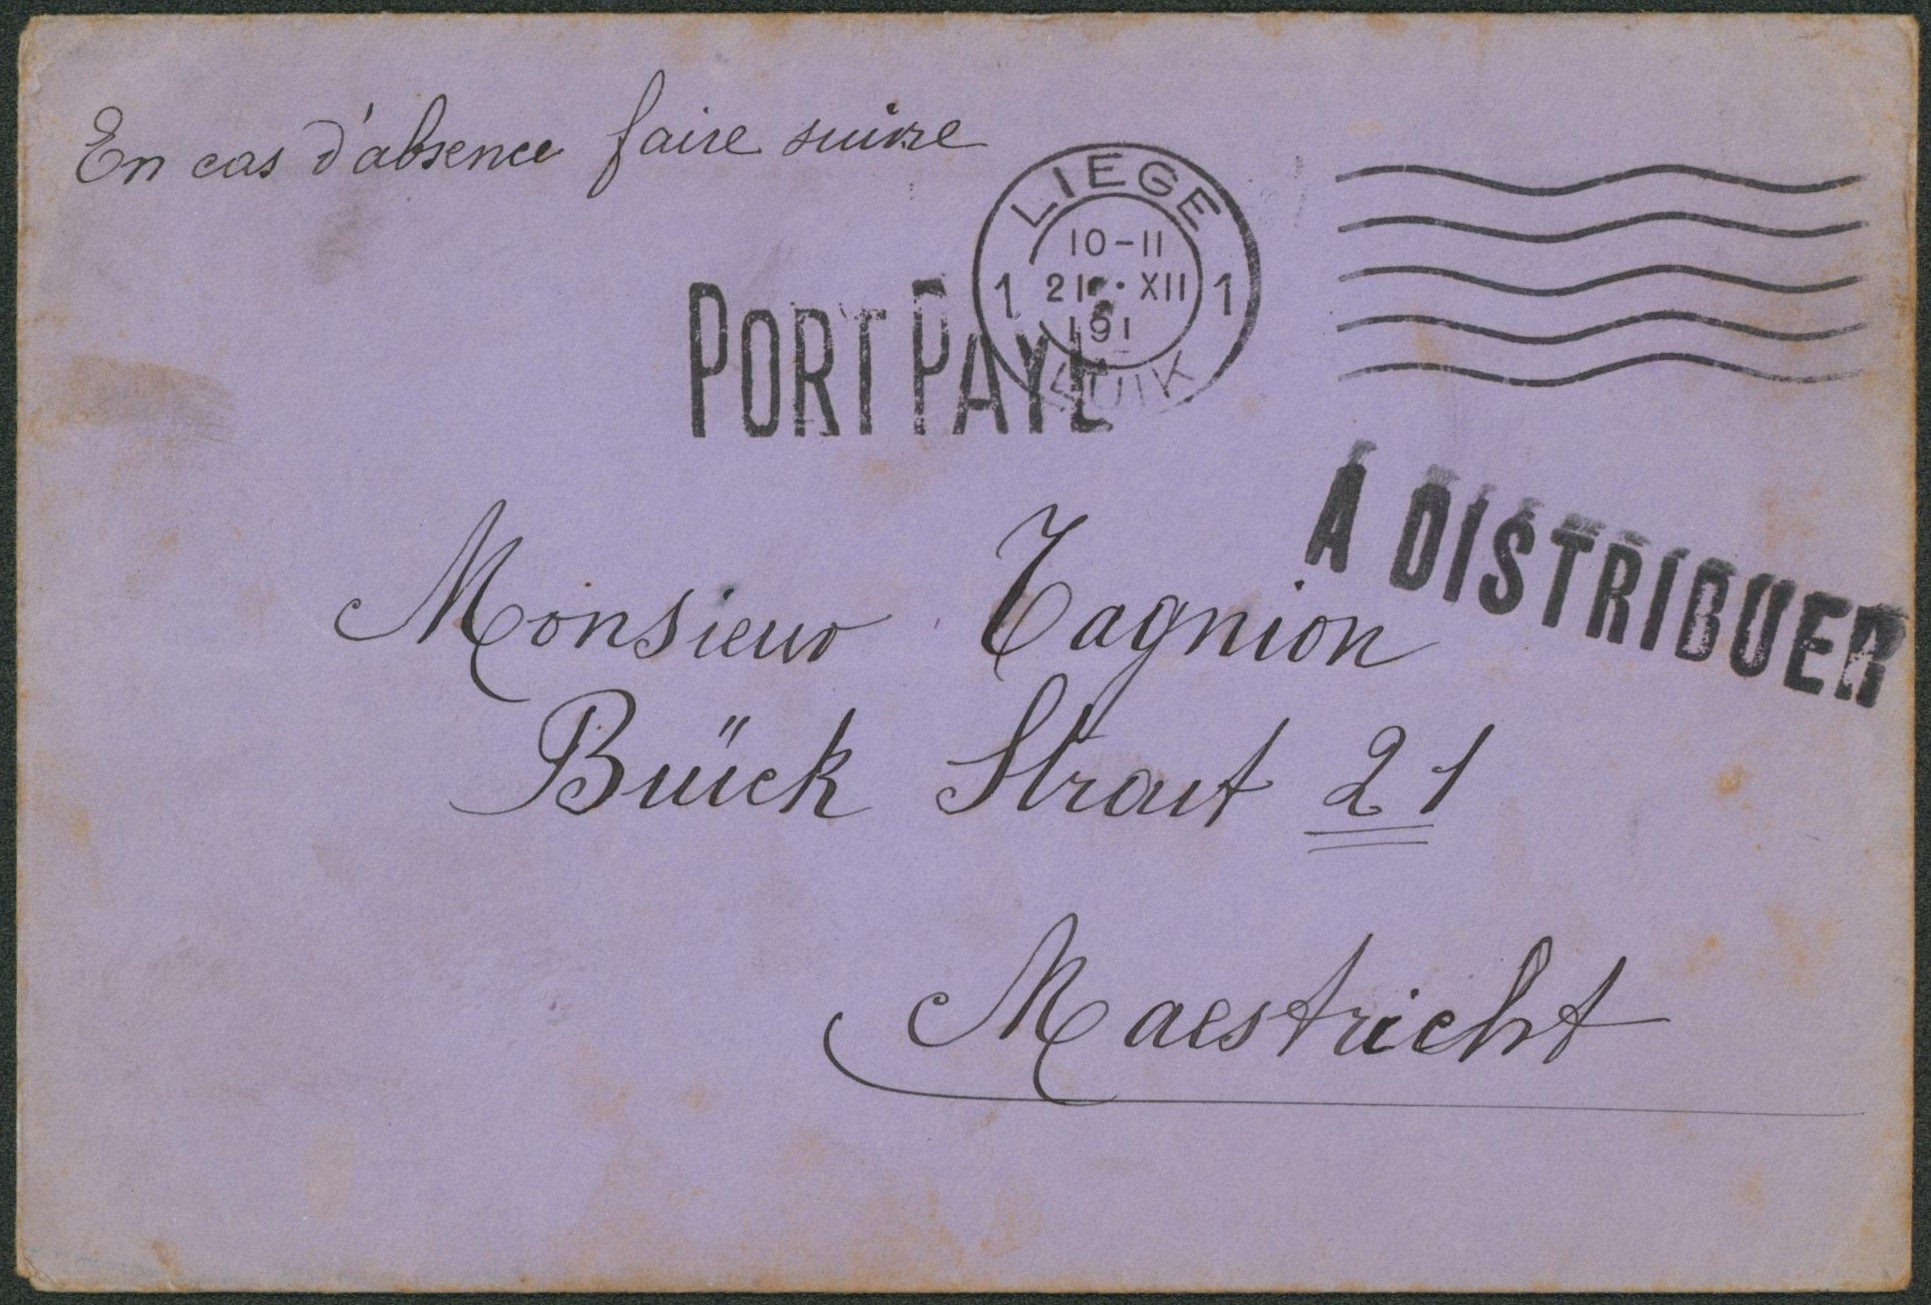 En cas d'absence faire suivre
LIEGE
10-11
1 21 XII 1
191
LUIK
PORT PAYE
A DISTRIBUER
Monsieur Tagnion
Buïck Strait 21
Maestricht